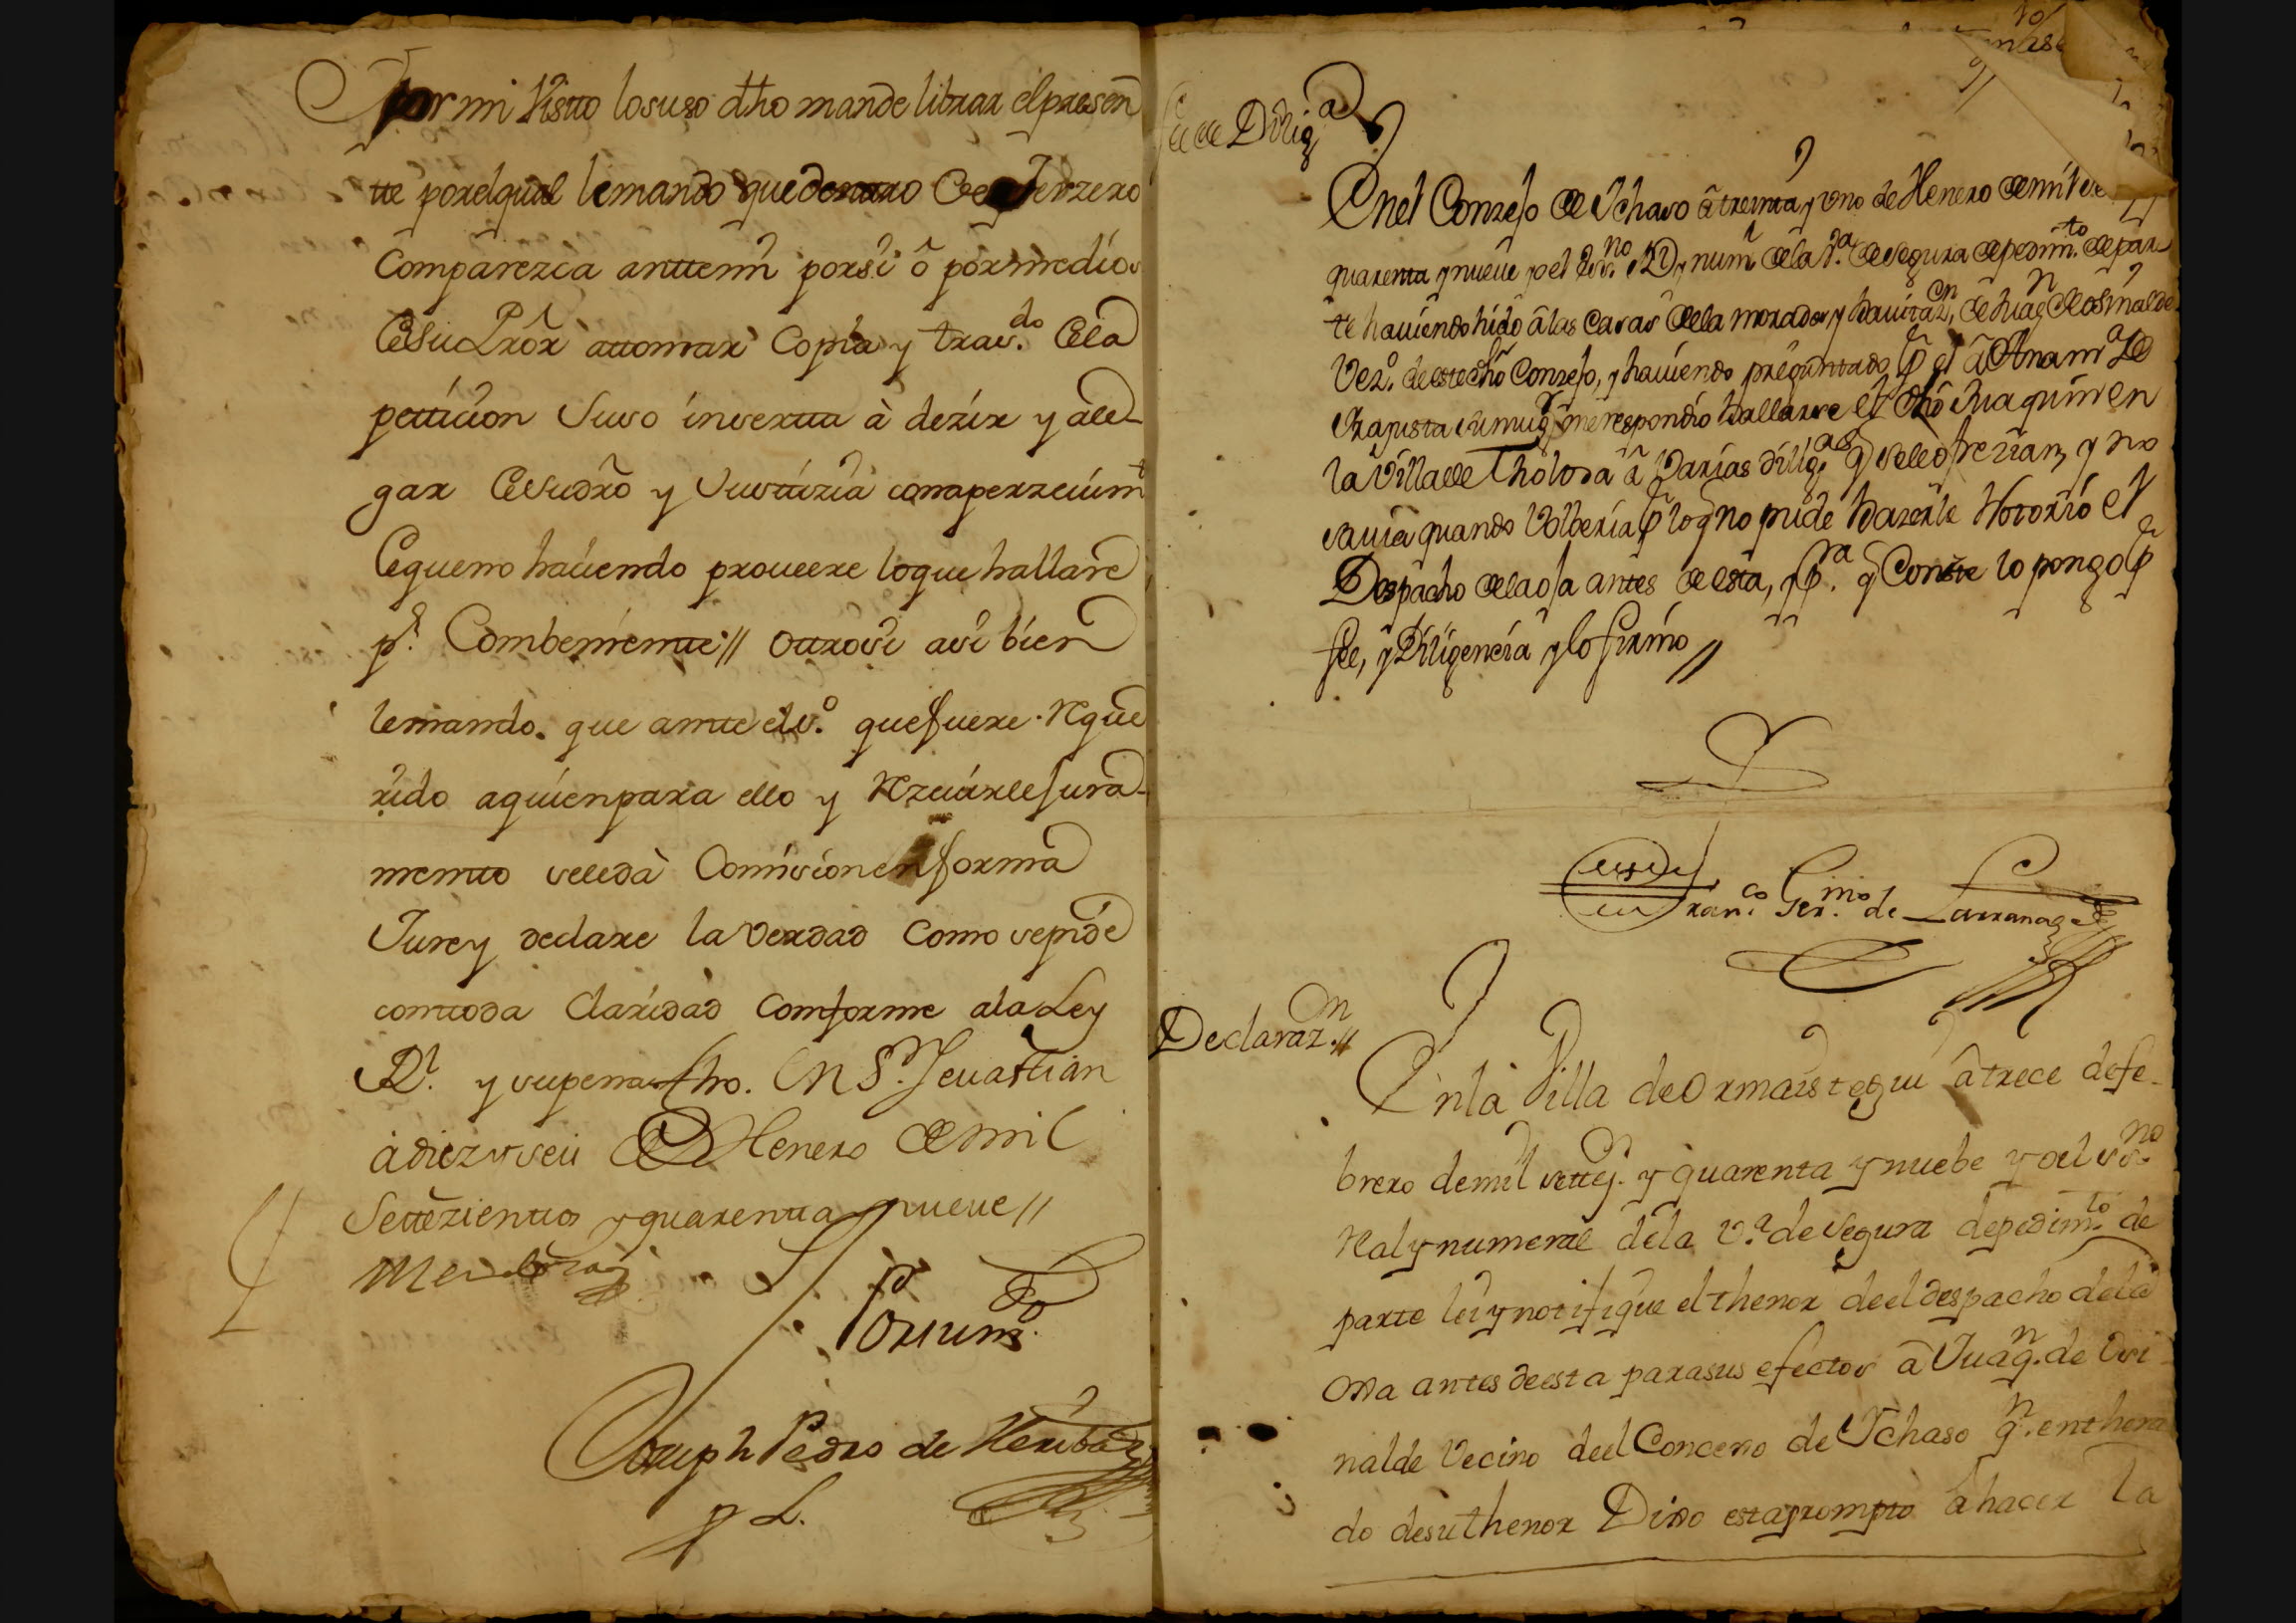 Por mi Visto lo suso dho mande librar el presen
tte por el qual le mando que dentro de Terzero
Comparezca antte mi por si ô por medio
de su Prôr attomar Copia y tras.do de la
pettizion Suso insertta à dezir y ale-
gar de su drõ y Justtizia con aperzeuim.to
de que no hauiendo proueere lo que hallare
p.r Combeniente // ottrosi asi bien
le mando. que antte el ss.o que fuere reque
rido a quien para ello y rezeuirle jura-
mentto se le da Comision en forma
Jure y declare la Verdad Como se pide
con ttoda Claridad Comforme a la Ley
R.l y su pena fho. En S.n Seuastian
à diez y seis de Henero de mil
Settezienttos y quarentta y nueue //
Mendoza
Por su m.do
Joseph Pedro de
p L.
Fee de Dilig.a
En el Conzejo de Ychaso â treinta y uno de Henero de mil
quarenta y nueue yo el Ess.no R.l y num.l de la V.a de Segura de pedim.to de par
te hauiendo hido â las Casas de la morada y hauitaz.on de Juaq.n de Osinalde
Vez.o de este dho Conzejo, y hauiendo preguntado p.r el â Ana m.a de
su mug.r me respondio hallarse el dho Juaquin en
la Villa de Tholosa â Varias dilig.as q se le ofrezian, y no
sauia quando Volberia p.r lo q no pude hazerle Notorio el
Despacho de la oja antes de esta, y p.ra q Conste lo pongo p.r
fee, y Diligencia y lo firmo //
Fran.co Ger.mo de Larranaga
Declaraz.on //
En la Villa de Ormaistegui â trece de fe-
brero de mil settez. y quarenta y nuebe yo el ss.no
Real y numeral de la V.a de Segura de pedim.to de
parte lei y notifique el thenor de el despacho de la
oja antes de esta para sus efectos â Juaq.n de Osi
nalde Vecino de el Concejo de Ychaso q.n enthera
do de su thenor Dijo esta prompto â hacer la